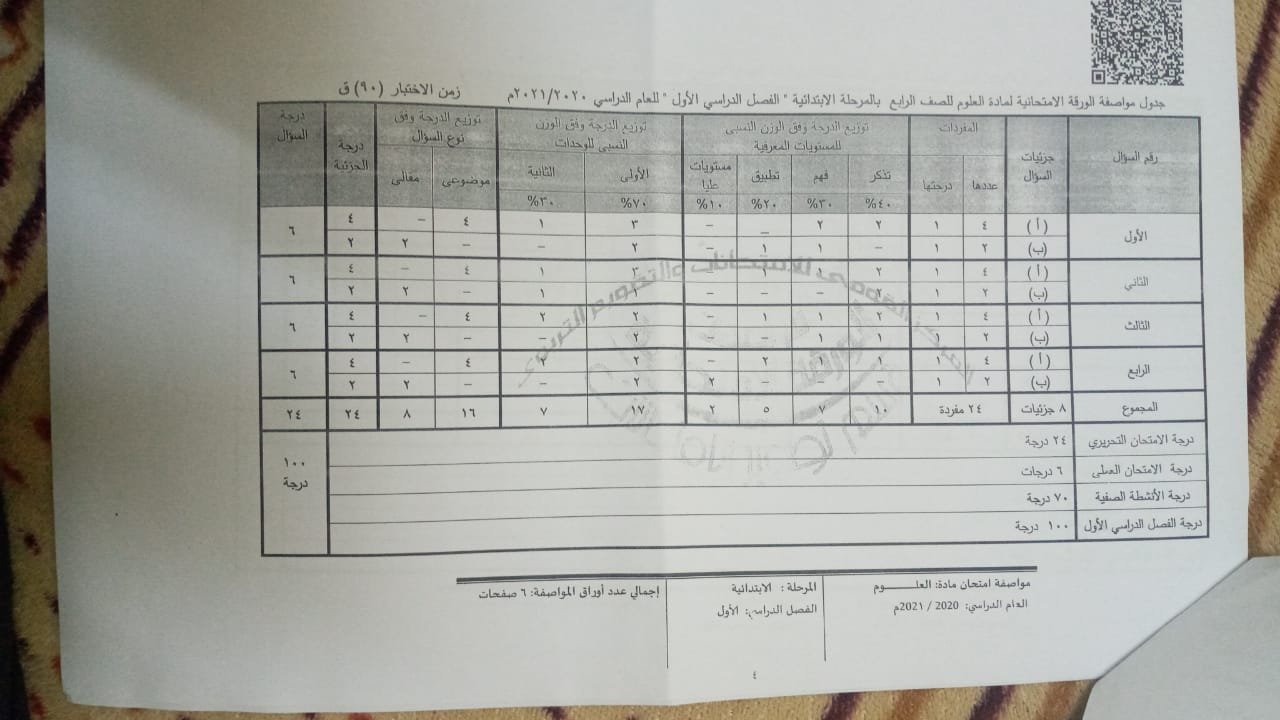 جدول مواصفة الورقة الامتحانية لمادة العلوم للصف الرابع بالمرحلة الابتدائية " الفصل الدراسي الأول " للعام الدراسي ٢٠٢١/٢٠٢٠م زمن الاختبار (٩٠) ق
رقم السؤال جزئيات السؤال المفردات توزيع الدرجة وفق الوزن النسبى للمستويات المعرفية توزيع الدرجة وفق الوزن النسبى للوحدات توزيع الدرجة وفق نوع السؤال درجة الجزئية درجة السؤال
عددها درجتها تذكر فهم تطبيق مستويات عليا الأولى الثانية موضوعى مقالى
٤٠% ٣٠% ٢٠% ١٠% ٧٠% ٣٠%
الأول (أ) ٤ ١ ٢ ٢ _ – ٣ ١ ٤ – ٤ ٦
(ب) ٢ ١ – ١ ١ – ٢ – – ٢ ٢
الثاني (أ) ٤ ١ ٢ ١ ١ – ٣ ١ ٤ – ٤ ٦
(ب) ٢ ١ ٢ – – – ١ ١ – ٢ ٢
الثالث (أ) ٤ ١ ٢ ١ ١ – ٢ ٢ ٤ – ٤ ٦
(ب) ٢ ١ ١ ١ – – ٢ – – ٢ ٢
الرابع (أ) ٤ ١ ١ ١ ٢ – ٢ ٢ ٤ – ٤ ٦
(ب) ٢ ١ – – – ٢ ٢ – – ٢ ٢
المجموع ٨ جزئيات ٢٤ مفردة ١٠ ٧ ٥ ٢ ١٧ ٧ ١٦ ٨ ٢٤ ٢٤
درجة الامتحان التحريري ٢٤ درجة ١٠٠ درجة
درجة الامتحان العملى ٦ درجات
درجة الأنشطة الصفية ٧٠ درجة
درجة الفصل الدراسي الأول ١٠٠ درجة
المركز القومى للامتحانات والتقويم التربوى
مواصفة امتحان مادة: العلـــــوم المرحلة : الابتدائية إجمالي عدد أوراق المواصفة: ٦ صفحات
العام الدراسي: 2020 / 2021م الفصل الدراسي: الأول
٤